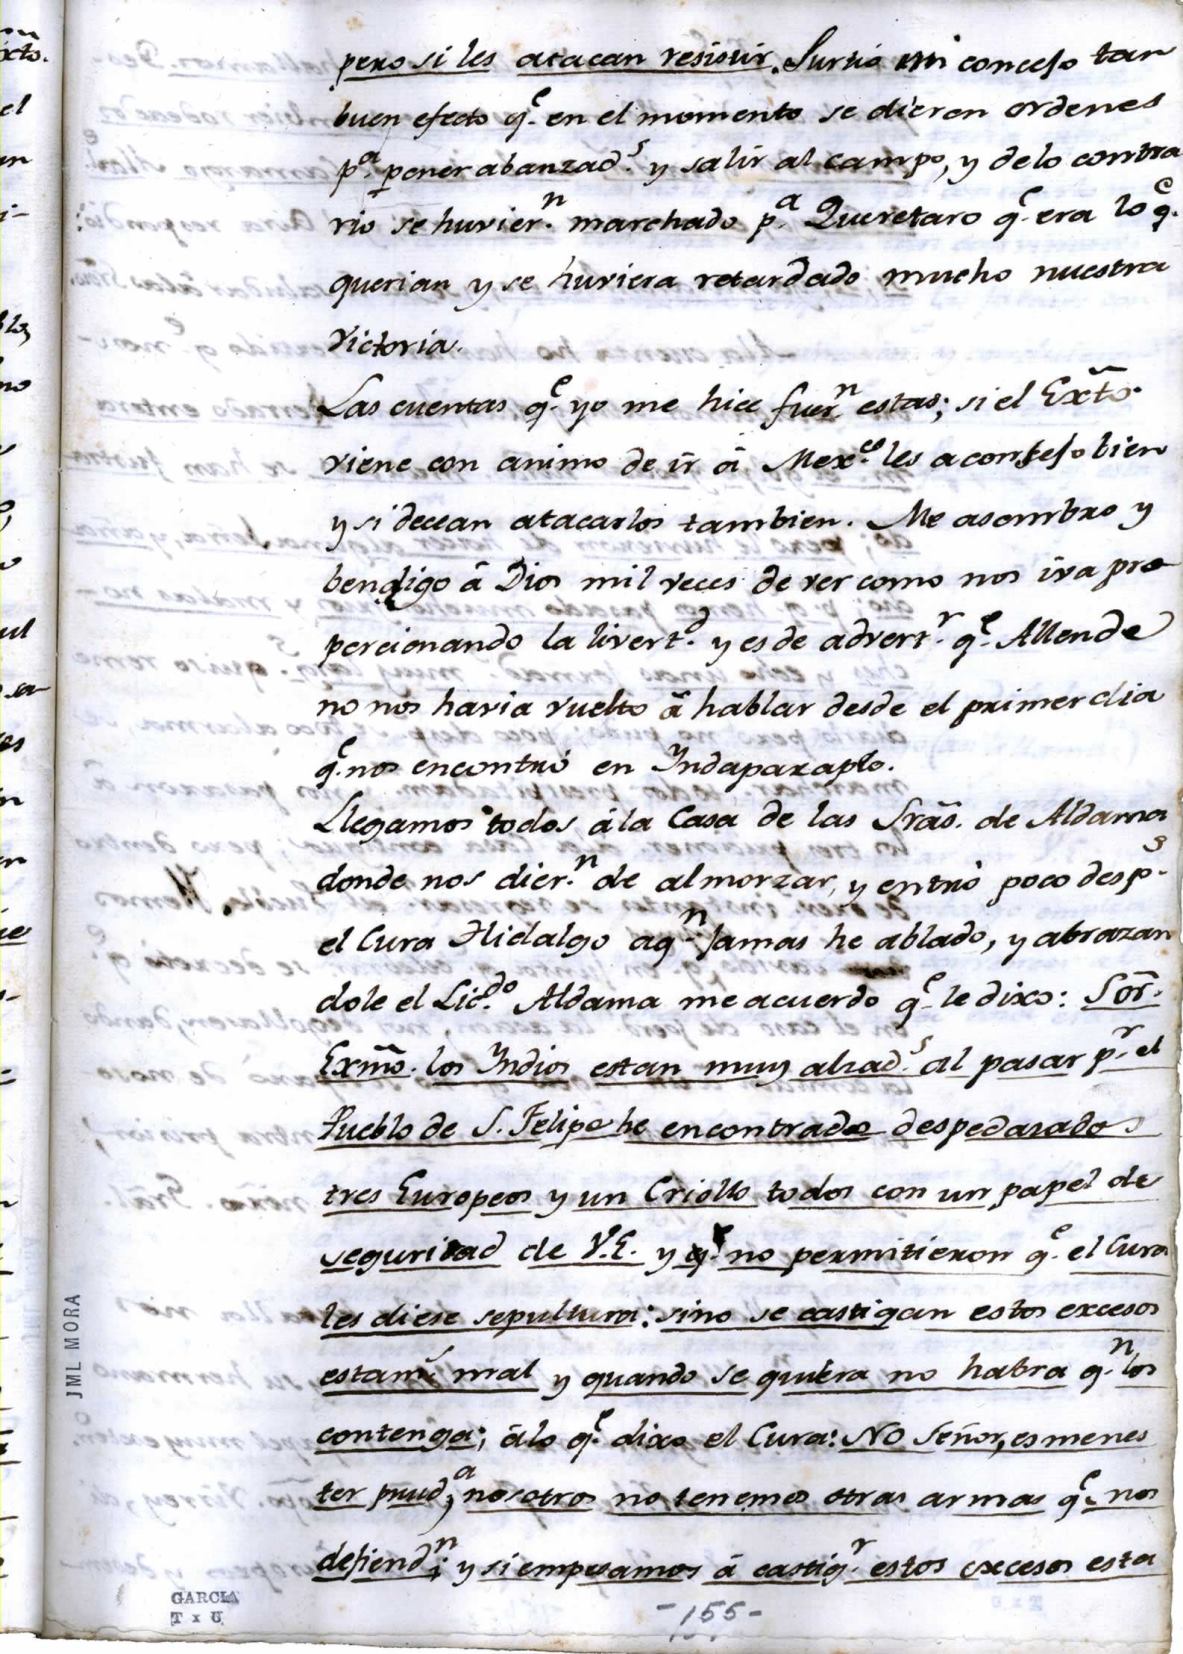 pero si les atacan resistir. Surtió mi concejo tan
buen efecto q.e en el momento se dieron ordenes
p.a poner abanzad.s y salir al campo, y delo contra
rio se huvier.n marchado p.a Queretaro q.e era lo q.e
querian y se huviera retardado mucho nuestra
victoria.
Las cuentas q.e yo me hice fuer.n estas; si el Exto.
viene con animo de ir á Mex.co les aconsejo bien
y si decean atacarlos tambien. Me asombro y
bendigo â Dios mil veces de ver como nos iva pro
porcionando la livert.d y es de advert.r q.e Allende
no nos havia vuelto â hablar desde el primer dia
q.e nos encontró en Yndaparapeo.
Llegamos todos ála Casa de las Srâs. de Aldama
donde nos dier.n de almorzar, y entró poco desp.s
el Cura Hidalgo aq.n Jamas he ablado, y abrazan
dole el Lic.do Aldama me acuerdo q.e le dixo: Sõr.
Exmõ. los Yndios estan muy alzad.s al pasar p.r el
Pueblo de S. Felipe he encontrado despedasados
tres Europeos y un Criollo todos con un papel de
seguridad de V.E. y q.e no permitieron q.e el Cura
les diese sepultura: sino se castigan estos excesos
estam.s mal y quando se quiera no habra q.n los
contenga; álo q.e dixo el Cura: NO Señor, es menes
ter prud.a, nosotros no tenemos otras armas q.e nos
defiend.n; y si empesamos á castig.r estos excesos esta
JML MORA
GARCIA
T x U
-155-